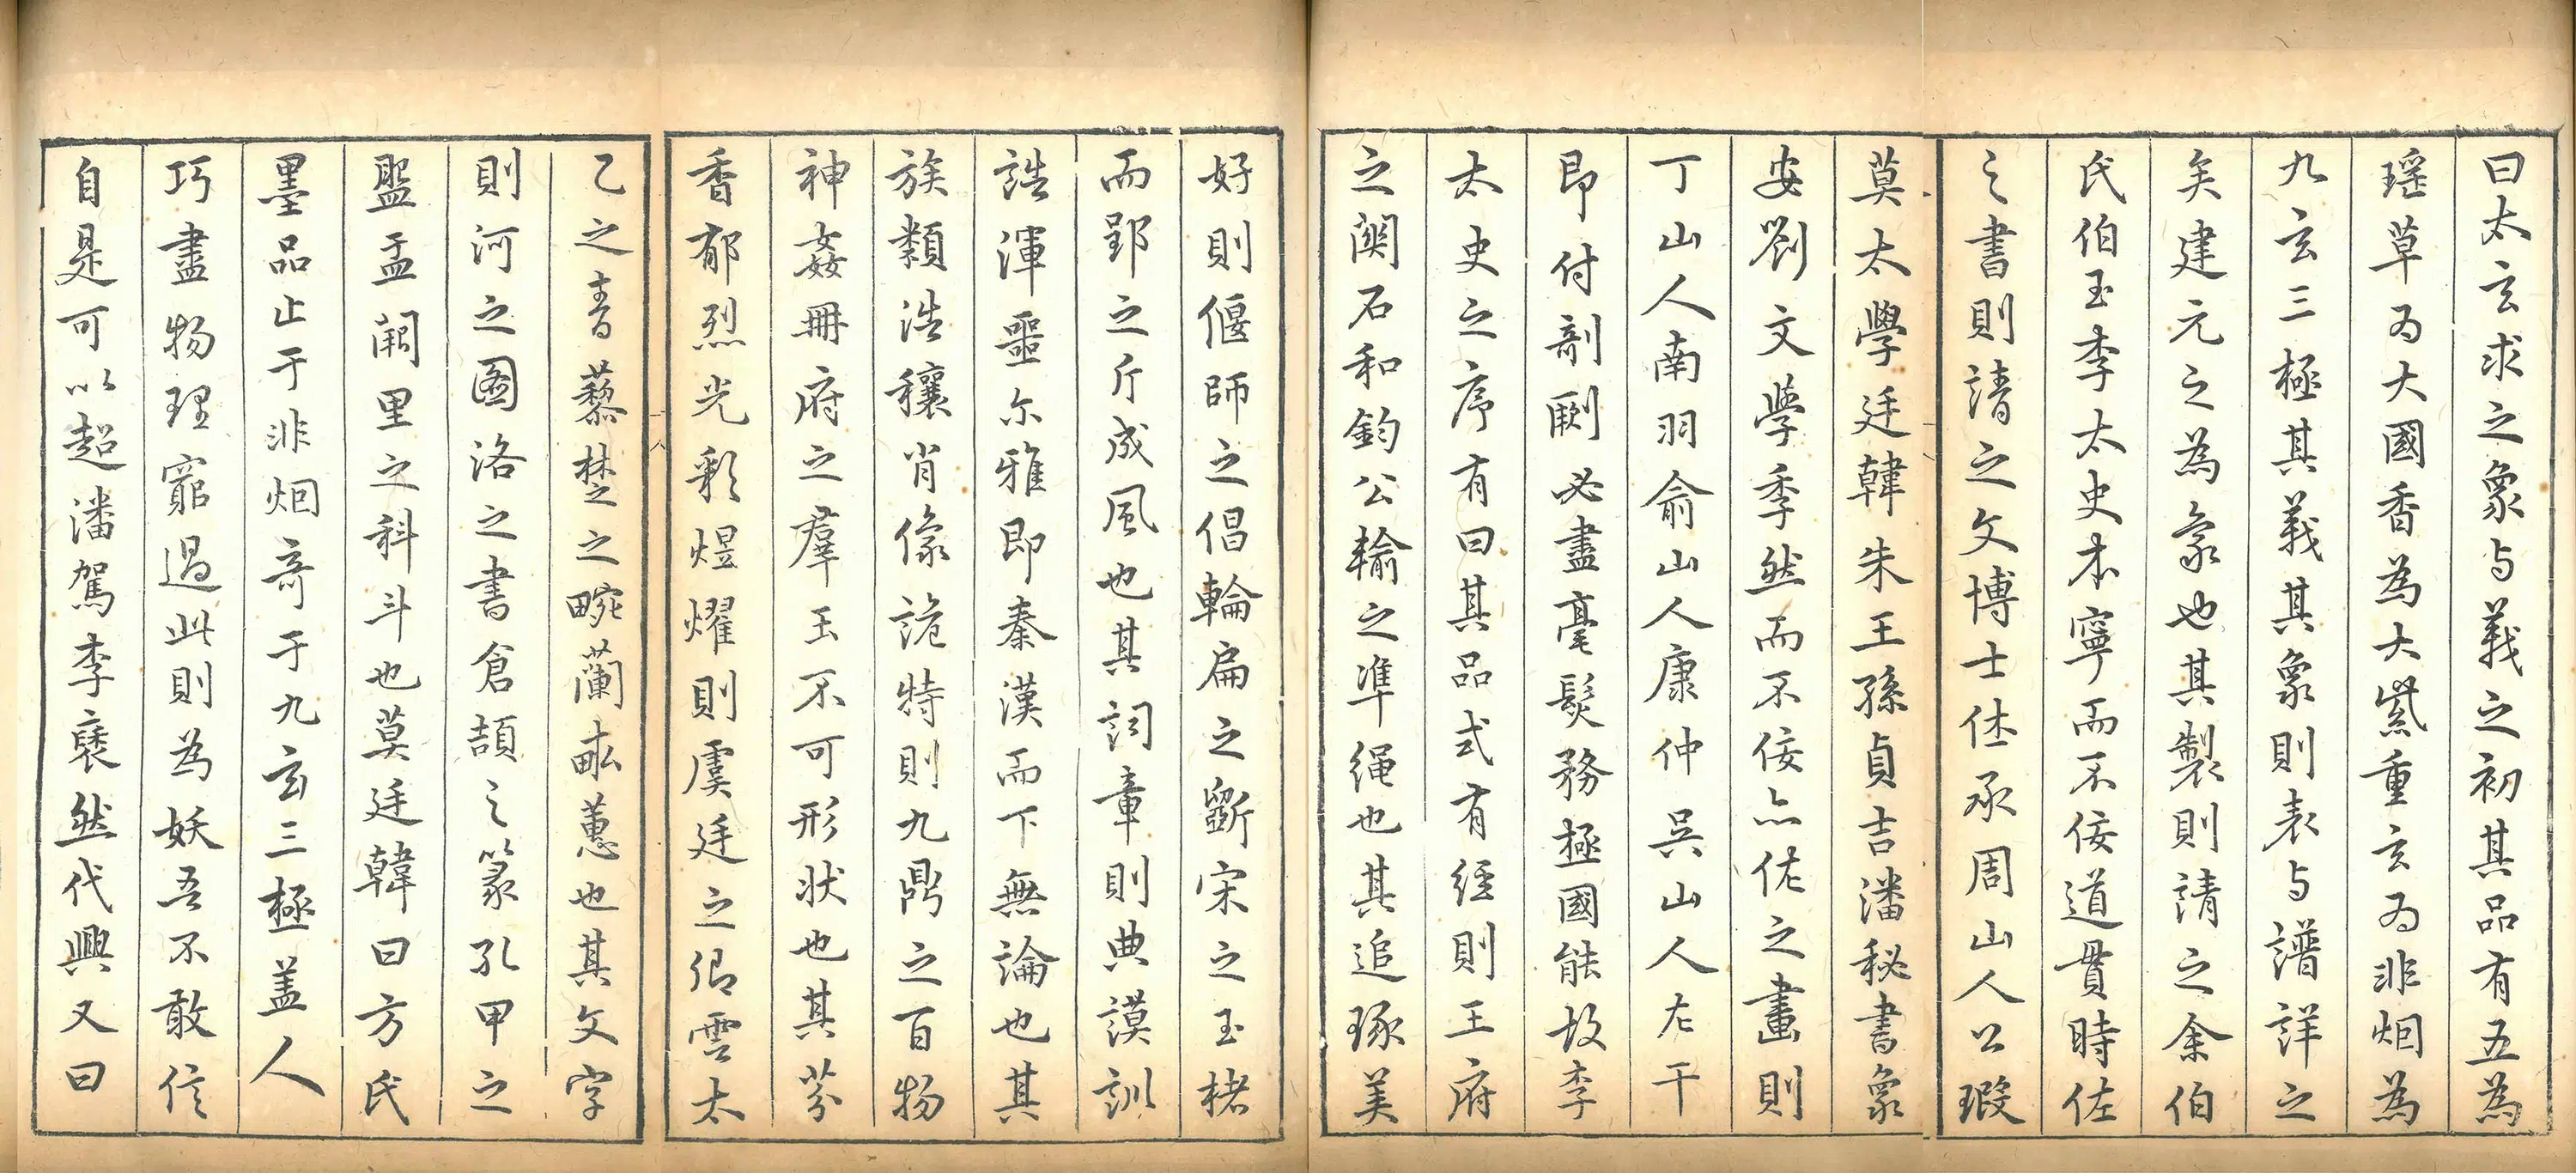 曰太玄求之象与義之初其品有五為
瑶草为大國香為大紫重玄为非烟為
九玄三極其義其象則表与譜詳之
矣建元之為彖也其製則請之余伯
氏伯玉李太史本寧而不佞道貫時佐
之書則請之文博士休承周山人公瑕
莫太學廷韓朱王孫貞吉潘秘書象
安劉文學季然而不佞亦佐之畫則
丁山人南羽俞山人康仲吳山人左干
即付剞劂必盡毫髮務極國能故李
太史之序有曰其品式有經則王府
之関石和鈞公輸之準绳也其追琢美
好則偃師之倡輪扁之斵宋之玉楮
而郢之斤成風也其詞章則典謨訓
誥渾噩尔雅即秦漢而下無論也其
族類浩穰肖像詭特則九鼎之百物
神姦冊府之羣玉不可形状也其芬
香郁烈光彩煜燿則虞廷之卿雲太
乙之青藜楚之畹蘭畝蕙也其文字
則河之圖洛之書倉頡之篆孔甲之
盤盂闕里之科斗也莫廷韓曰方氏
墨品止于非烟奇于九玄三極盖人
巧盡物理窮過此則為妖吾不敢信
自是可以超潘駕李褎然代興又曰